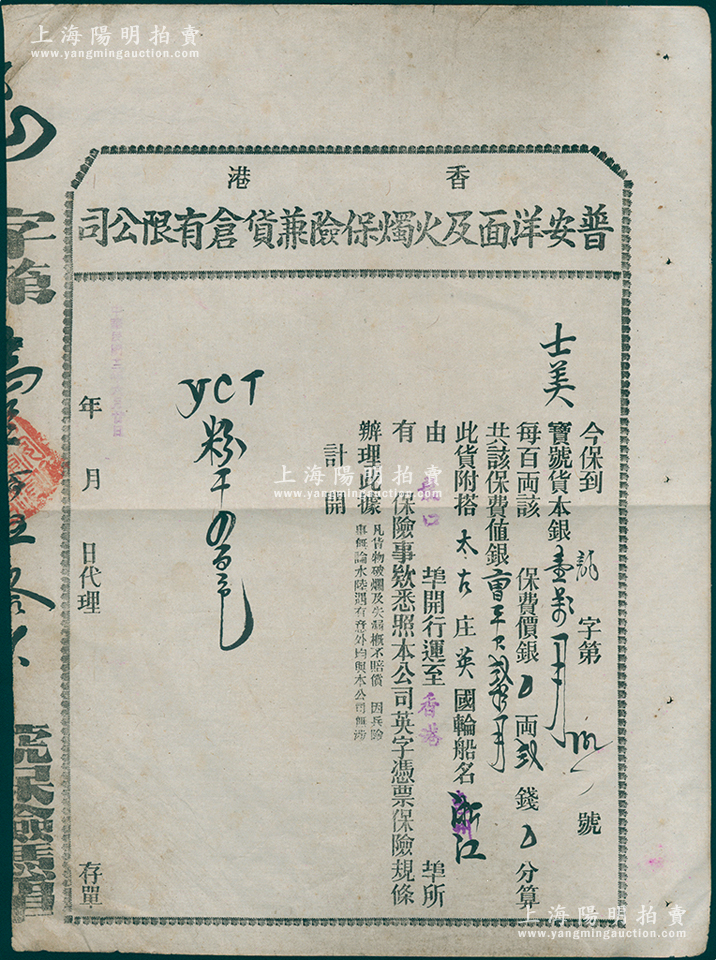 上海陽明拍賣
www.yangmingauction.com
香港
普安洋面及火燭保險兼貨倉有限公司
今保到 字第 號
士美 寶號貨本銀壹
每百両該 保費價銀 両 錢 分算
共該保費值銀
此貨附搭太古庄英國輪船名浙江
由 口 埠開行運至香港 埠所
有 保險事欵悉照本公司英字憑票保險規條
辦理此據 凡貨物破爛及失漏概不賠償 因兵險
事無論水陸遇有意外均與本公司無涉
計開
YCT
粉
年 月 日代理 存單
字第 號保險憑單
上海陽明拍賣
www.yangmingauction.com
上海陽明拍賣
www.yangmingauction.com